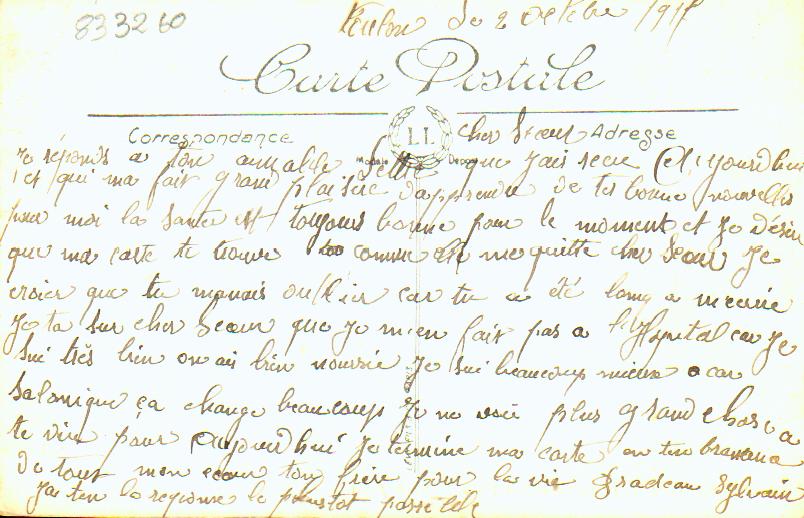 833260
Toulon le 2 octobre 191
Carte Postale
LL
Correspondance
Adresse
Modèle Déposé
cher Sœur
Je réponds a ton aimable lettre que jais recue aujourdhui
et qui ma fait grand plaisire dapprendre de tes bonne nouvelles
pour moi la santé est toujours bonne pour le moment et je désire
que ma carte te trouve comme elle me quitte cher Sœur Je
croier que tu manais oublier car tu a été long a mecrire
Je ta sur cher sœur que je mien fait pas a l'Hopital car je
sui très bien on ais bien nourrie Je sui beaucoup mieux a car
Salonique ça change beaucoup Je ne voie plus grand chose a
te dire pour aujourdhui je termine ma carte en tembrassan
de tout mon cœur ton frère pour la vie Gradeau Sylvain
Jai ten la reponse le plustot posseible